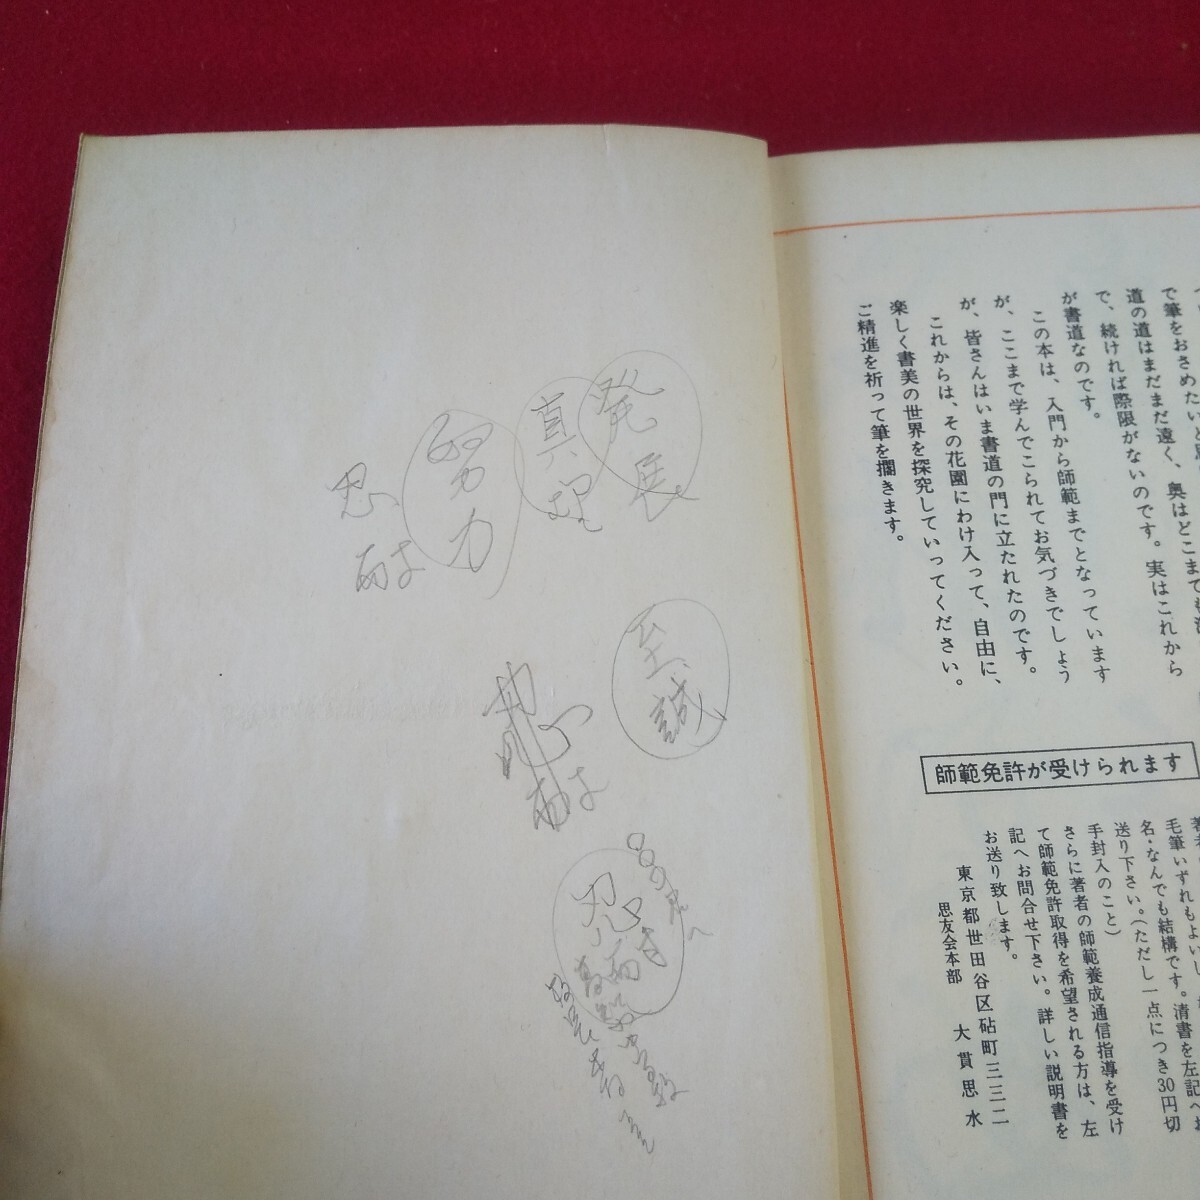 で筆をおさめたいと思
道の道はまだまだ遠く、奥はどこまでも深
で、続ければ際限がないのです。実はこれから
が書道なのです。
この本は、入門から師範までとなっています
が、ここまで学んでこられてお気づきでしょう
が、皆さんはいま書道の門に立たれたのです。
これからは、その花園にわけ入って、自由に、
楽しく書美の世界を探究していってください。
ご精進を祈って筆を擱きます。
師範免許が受けられます
毛筆いずれもよいし
名・なんでも結構です。清書を左記へお
送り下さい。(ただし一点につき30円切
手封入のこと)
さらに著者の師範養成通信指導を受け
て師範免許取得を希望される方は、左
記へお問合せ下さい。詳しい説明書を
お送り致します。
東京都世田谷区砧町三三二
思友会本部 大貫思水
発展
真理
努力
忍
耐
至誠
忍耐